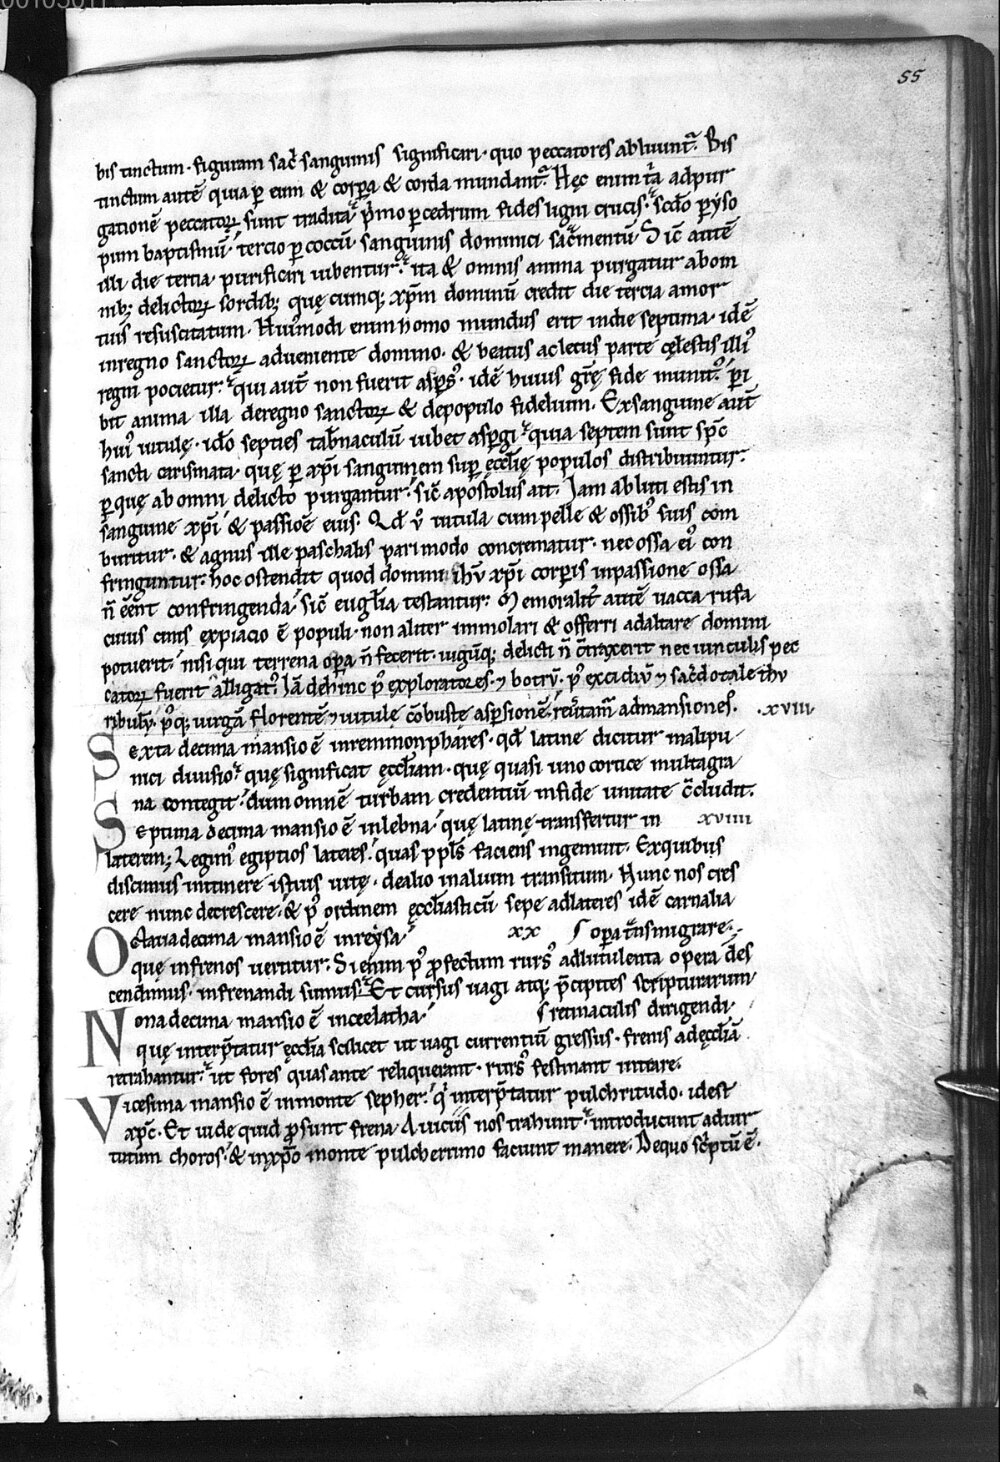 55
bis tinctum · figuram sac̄ sanguinis significari · quo peccatores abluunt᷑. Bis
tinctum autē quia ꝑ eum & corꝑa & corda mundant᷑. Hęc enim t̄a adpur
gationē peccatoꝝ sunt tradita p̄mo ꝑ cedrum fides ligni crucis · scd̄o ꝑ yso
pum baptismū · tercio ꝑ coccū sanguinis dominici sac̄mentū. Sic̄ autē
illi die tertia purificari iubentur · ita & omnis anima purgatur ab om
nib; delictoꝝ sordib; quę cumq; xp̄m dominū credit die tercia a mor
tuis resuscitatum. Huiꝰmodi enim homo mundus erit in die septima · idē
in regno sanctoꝝ adueniente domino · & beatus ac letus parte cęlestis illiꝰ
regni pocietur. qui aut̄ non fuerit asꝑsꝰ · idē huius gr̄ę fide munitꝰ · ꝑi
bit anima illa de regno sanctoꝝ & de populo fidelium. Ex sanguine aut̄
huiꝰ uitulę · ido septies tab̄naculū iubet asꝑgi quia septem sunt sp̄c
sancti carismata · quę ꝑ xp̄i sanguinem suꝑ ęccl̄ię populos distribuuntur ·
ꝑ quę ab omni delicto purgantur · sic̄ apostolus ait. Iam abluti estis in
sanguine xp̄i & passioē eius. Qd̄ v̊ uitula cum pelle & ossibꝰ suis com
buritur · & agnus ille paschalis pari modo concrematur · nec ossa eiꝰ con
fringuntur · hoc ostendit quod domini ih̄u xp̄i corꝑis in passione ossa
n̄ eēnt confringenda · sic̄ eug̅lia testantur. Memoralit᷑ autē uacca rufa
cuius cinis expiacio ē populi · non aliter immolari & offerri ad altare domini
potuerit · nisi qui terrena oꝑa n̄ fecerit · iugūq; delicti n̄ ct̄raxerit nec uinculis pec
catoꝝ fuerit alligatꝰ. Iā dehinc pꝰ exploratores · ⁊ botrū · pꝰ excidiū ⁊ sac̄dotale thy
ribulū · pꝰq; uirgā florentē ⁊ uitule cōbustę asꝑsionē · reuertam̄ ad mansiones. · xviii
Sexta decima mansio ē in remmonphares · qd̄ latine dicitur malipu
nici diuisio · quę significat ęccl̄iam · quę quasi uno cortice multa gra
na contegit · dum omnē turbam credentiū in fide unitate c̄cludit.
Septima decima mansio ē in lebna · quę latinę transfertur in xviiii
laterem; Legimꝰ egiptios lateres · quas ppl̄s faciens ingemuit · Ex quibus
discimus in itinere istius uitę · de alio in aliuim transitum · Nunc nos cres
cere nunc decrescere · & pꝰ ordinem ęccl̄iasticū sepe ad lateres idē carnalia
Octaua decima mansio ē in reẏsa · xx oꝑa t̄nsmigrare ·
quę in frenos uertitur. Si enim pꝰ ꝓfectum rursꝰ ad lutulenta opera des
cendimus · infrenandi sumus. Et cursus uagi atq; p̄cipites scripturarum
Nona decima mansio ē in ceelatha · retinaculis dirigendi ·
quę interp̄tatur ęccl̄ia scilicet ut uagi currentiū gressus · frenis ad ęccl̄iā
retrahantur · ut fores quas ante reliquerant · rursꝰ festinant intrare ·
Vicesima mansio ē in monte sepher · qͥ interp̄tatur pulchritudo · idest
xp̄c · Et uide quid ꝓsunt frena · A uiciis nos trahunt · introducunt ad uir
tutum choros · & in xp̄o monte pulcherrimo faciunt manere · De quo sc̄ptū ē ·